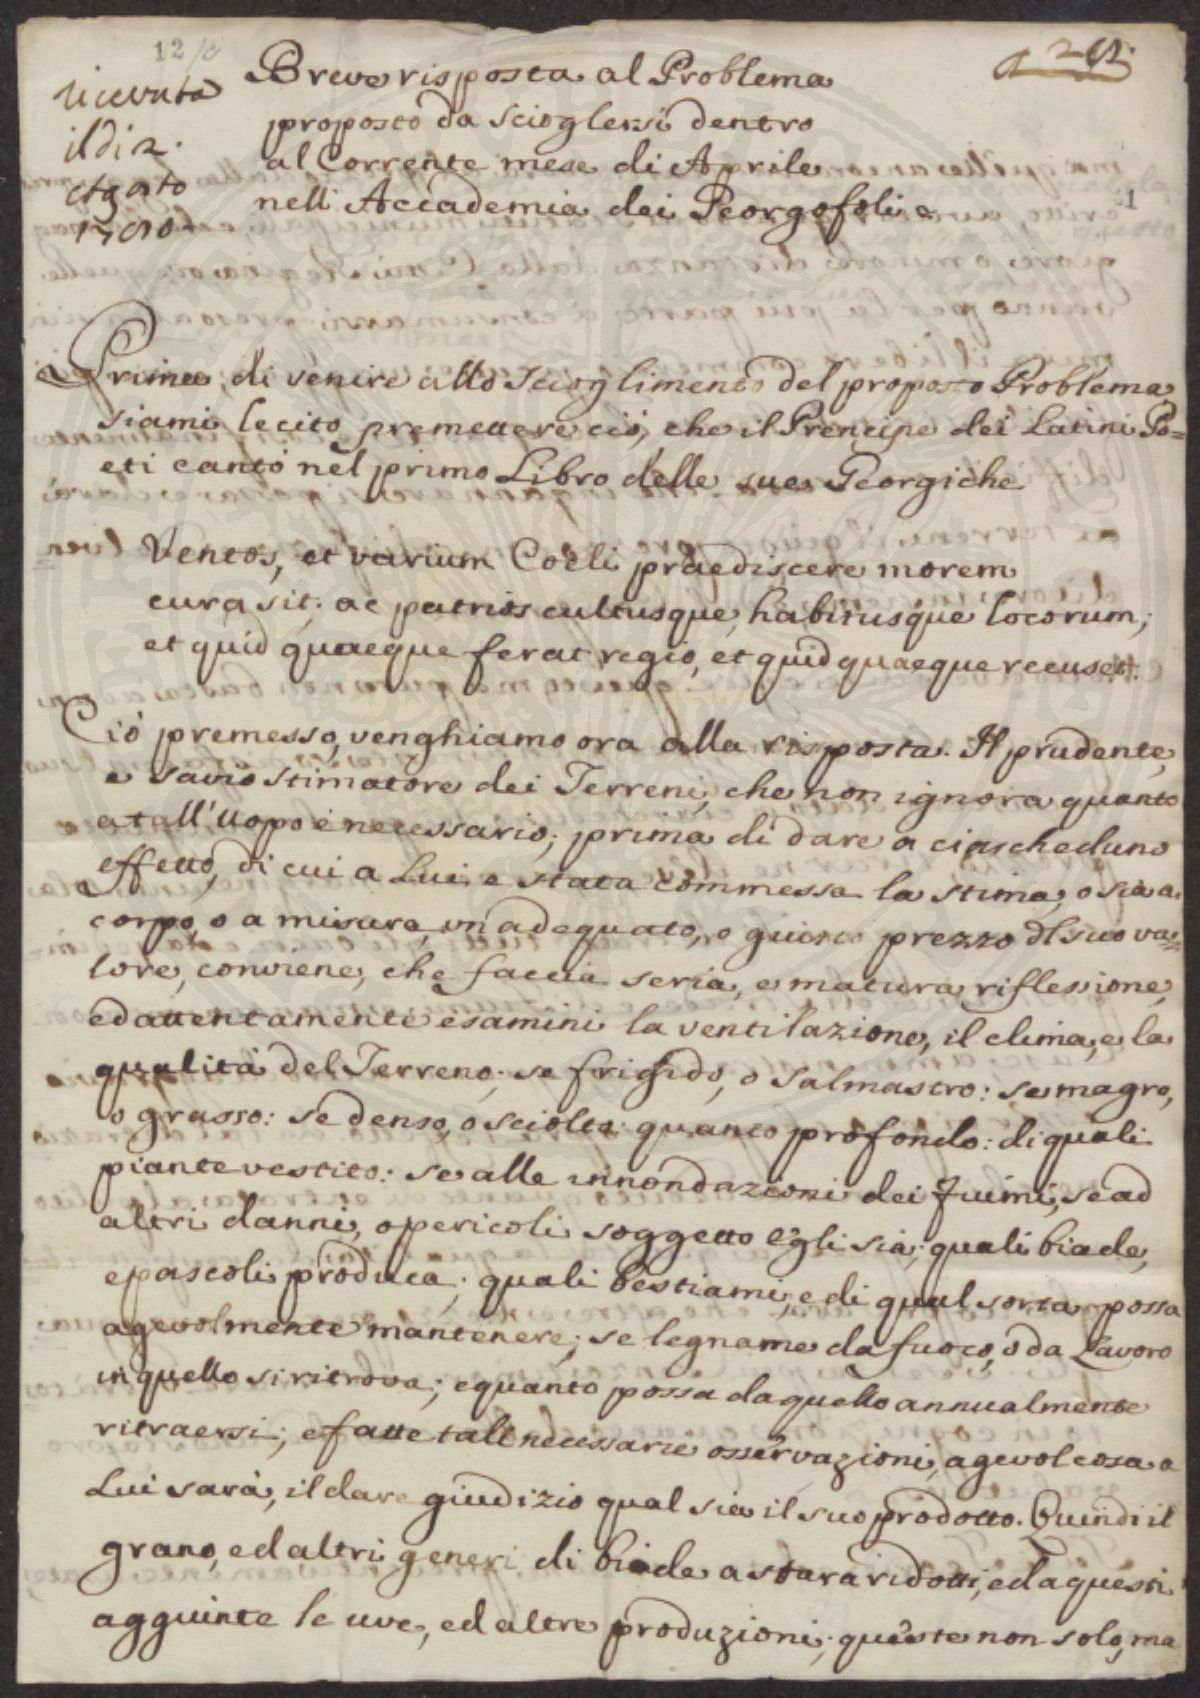 12
a 292.
ricevuta
il di 2.
Agosto
Breve risposta al Problema
proposto da sciogliersi dentro
al Corrente mese di Aprile
nell' Accademia dei Georgofoli e
21
Prima, di venire allo scioglimento del proposto Problema,
siami lecito premettere ciò, che il Prencipe dei Latini Po=
eti cantò nel primo Libro delle sue Georgiche
Ventos, et varium Coeli praediscere morem
cura sit; ac patrios cultusque, habitusque locorum;
et quid quaeque ferat regio, et quid quaeque recuset.
Ciò premesso, venghiamo ora alla risposta. Il prudente,
e savio stimatore dei Terreni, che non ignora quanto
a tall'Uopo è necessario; prima di dare a ciascheduno
effetto, di cui a Lui e stata commessa la stima, o sia a
corpo, o a misura, un adeguato, o giusto prezzo del suo va=
lore, conviene, che faccia seria, e matura riflessione,
ed attentamente esamini la ventilazione, il clima, e la
qualità del Terreno; se frigido, o salmastro: se magro,
o grasso: se denso, o sciolto: quanto profondo: di quali
piante vestito: se alle innondazioni dei Fiumi, se ad
altri danni, o pericoli soggetto Egli sia; quali biade,
e pascoli produca; quali bestiami, e di qual sorta possa
agevolmente mantenere; se legname da fuoco, o da Lavoro
in quello si ritrova; e quanto possa da quello annualmente
ritraersi; e fatte tali necessarie osservazioni, agevol cosa a
Lui sarà, il dare giudizio qual sia il suo prodotto. Quindi il
grano, ed altri generi di biade a stara ridotti, ed a questi
aggiunte le uve, ed altre produzioni; queste non solo, ma